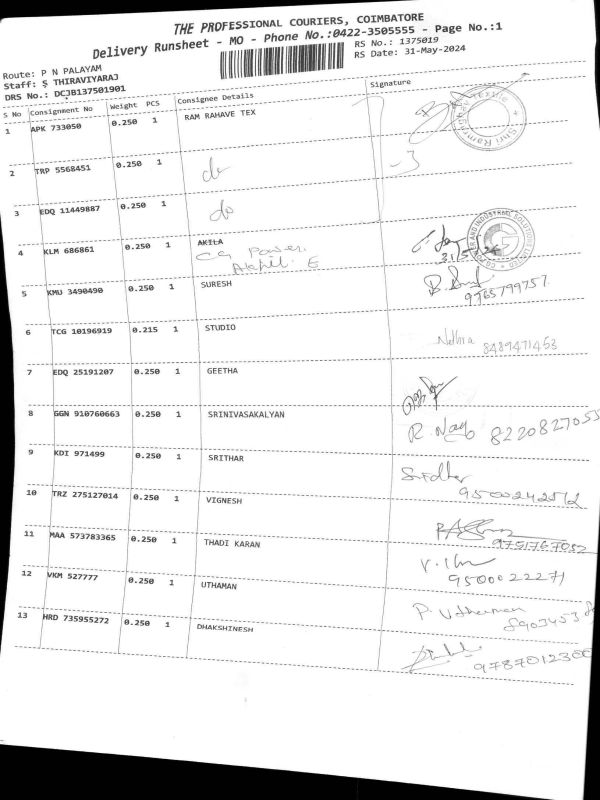 THE PROFESSIONAL COURIERS, COIMBATORE
Delivery Runsheet - MO - Phone No.:0422-3505555 - Page No.:1
RS No.: 1375019
RS Date: 31-May-2024
Route: P N PALAYAM
Staff: S THIRAVIYARAJ
DRS No.: DCJB137501901
S No Consignment No Weight PCS Consignee Details Signature
1 APK 733050 0.250 1 RAM RAHAVE TEX
2 TRP 5568451 0.250 1 do -3
3 EDQ 11449887 0.250 1 do
4 KLM 686861 0.250 1 AKILA
CG Power
E
5 KMU 3490490 0.250 1 SURESH
9765799757
6 TCG 10196919 0.215 1 STUDIO Nethra 8489471453
7 EDQ 25191207 0.250 1 GEETHA
8 GGN 910760663 0.250 1 SRINIVASAKALYAN R. Nago 8220827055
9 KDI 971499 0.250 1 SRITHAR Sridhar
9500242512
10 TRZ 275127014 0.250 1 VIGNESH
9751767052
11 MAA 573783365 0.250 1 THADI KARAN
9500022271
12 VKM 527777 0.250 1 UTHAMAN P. Uthaman
13 HRD 735955272 0.250 1 DHAKSHINESH
9787012300